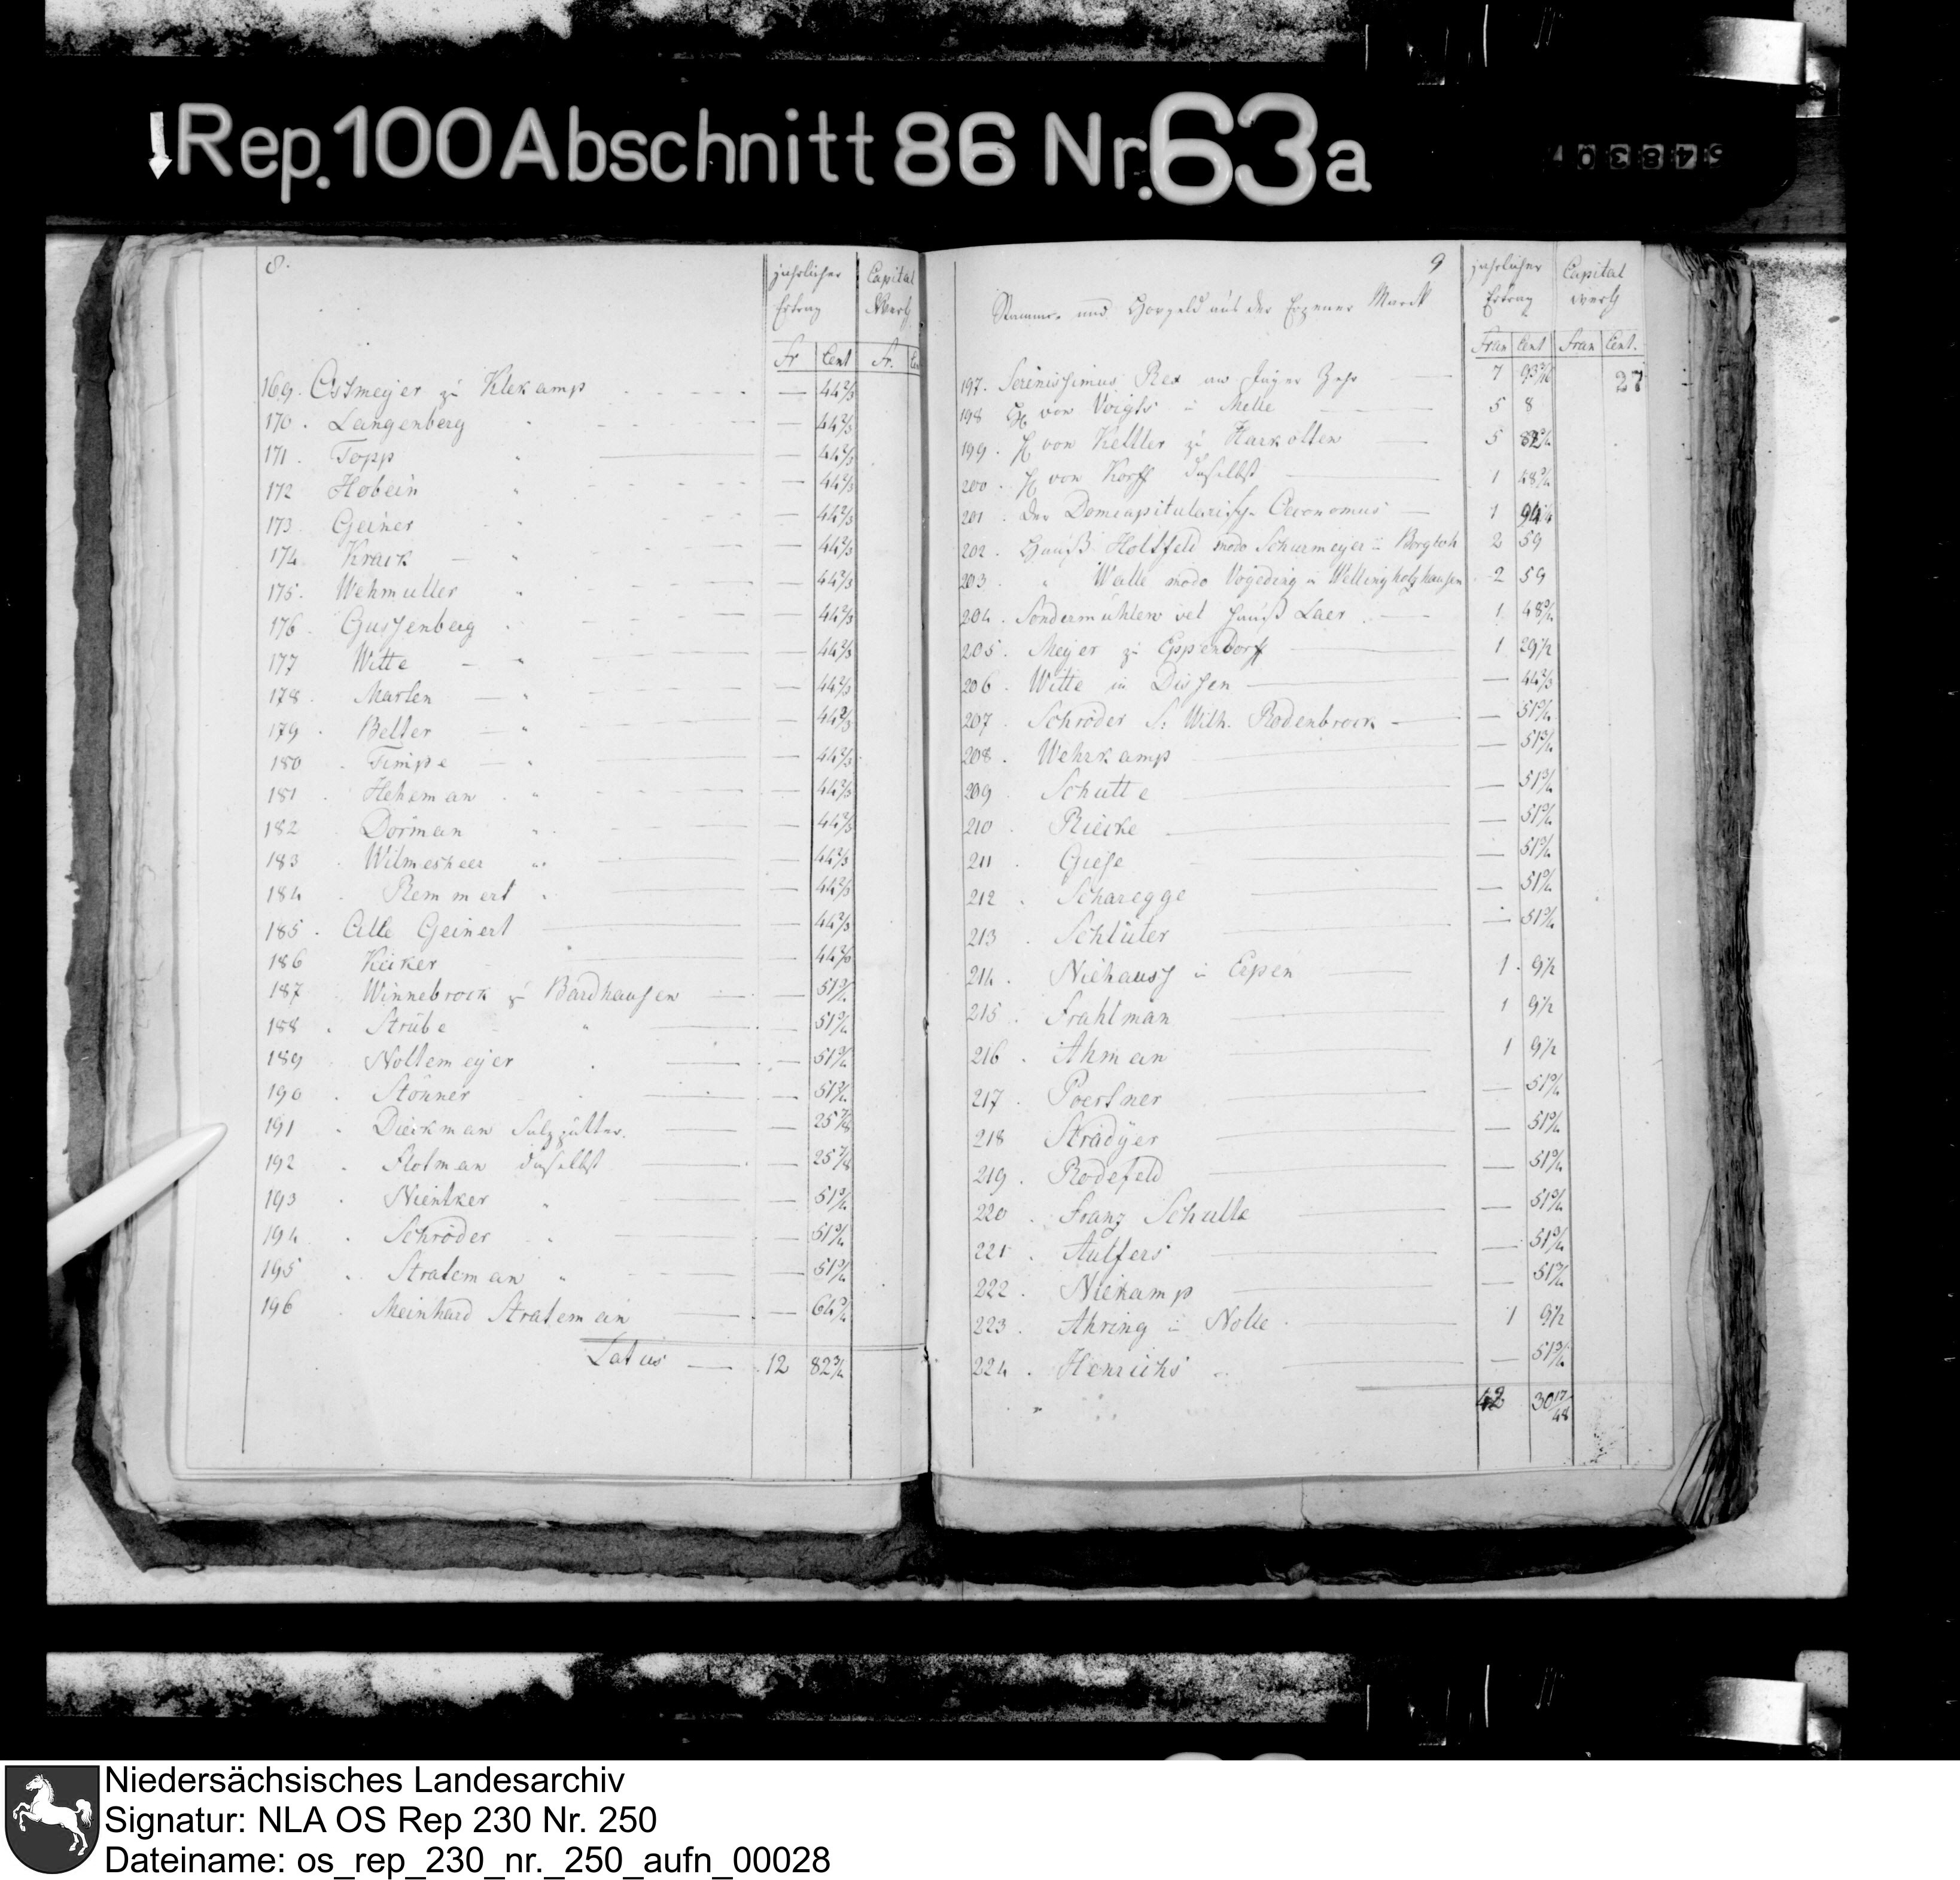 Rep. 100 Abschnitt 86 Nr. 63a
8.
jährlicher Ertrag
Capital Werth
Fr Cent Fr.
169. Ostmeyer zu Klekamp — 44 2/3
170. Langenberg " — 44 2/3
171. Topp " — 44 2/3
172 Hobein " — 44 2/3
173. Geiner " — 44 2/3
174 Krack " — 44 2/3
175. Wehmuller " — 44 2/3
176. Gussenberg " — 44 2/3
177 Witte " — 44 2/3
178. Marten " — 44 2/3
179. Belter " — 44 2/3
180. Timpe " — 44 2/3
181. Heheman " — 44 2/3
182. Dorman " — 44 2/3
183. Wilmesheer " — 44 2/3
184. Remmert " — 44 2/3
185. Alte Geinert — 44 2/3
186 Kuker " — 44 2/3
187 Winnebrock zu Bardhausen — 51 3/4
188. Strube " — 51 3/4
189. Noltemeyer " — 51 3/4
190. Stonner " — 51 3/4
191. Dieckman — 25 7/8
192. Flotman daselbst — 25 7/8
193. Nientker " — 51 3/4
194. Schröder " — 51 3/4
195. Strateman " — 51 3/4
196. Meinhard Strateman — 64 3/4
Latus — 12 82 3/4
9
Stamm- und Horgeld aus der Erpener Marck
jährlicher Ertrag
Capital werth
Fran Cent Fran Cent.
27
197. Serenissimus Rex 7 93
198 H. von Voigts in Melle 5 8
199. H von Kettler zu Harkotten 5
200. H von Korff daselbst 1 48 3/4
201. Der Domcapitularisch. Oeconomus 1
202. Hauss Holtfeld modo Schurmeyer in Borgloh 2 59
203. " Walle modo Vogeding in Wellingholzhausen 2 59
204. Sondermühlen vel Hauss Laer 1 48 3/4
205. Meyer zu Eppendorff 1 29 1/2
206. Witte in Dissen — 44 2/3
207. Schröder S: Wilh. Rodenbrock — 51 3/4
208. Wehrkamp — 51 3/4
209 Schutte — 51 3/4
210. Riecke — 51 3/4
211. Giese — 51 3/4
212. Scharegge — 51 3/4
213. Schlüter — 51 3/4
214. Niehauss in Erpen 1 9 1/2
215. Frahlman 1 9 1/2
216. Ahman 1 9 1/2
217. Poertner — 51 3/4
218 — 51 3/4
219. Rodefeld — 51 3/4
220. Franz Schulte — 51 3/4
221. — 51 3/4
222. Niekamp — 51 3/4
223. Ahring in Nolle 1 9 1/2
224. Henrichs " — 51 3/4
42 30 17/48
Niedersächsisches Landesarchiv
Signatur: NLA OS Rep 230 Nr. 250
Dateiname: os_rep_230_nr._250_aufn_00028